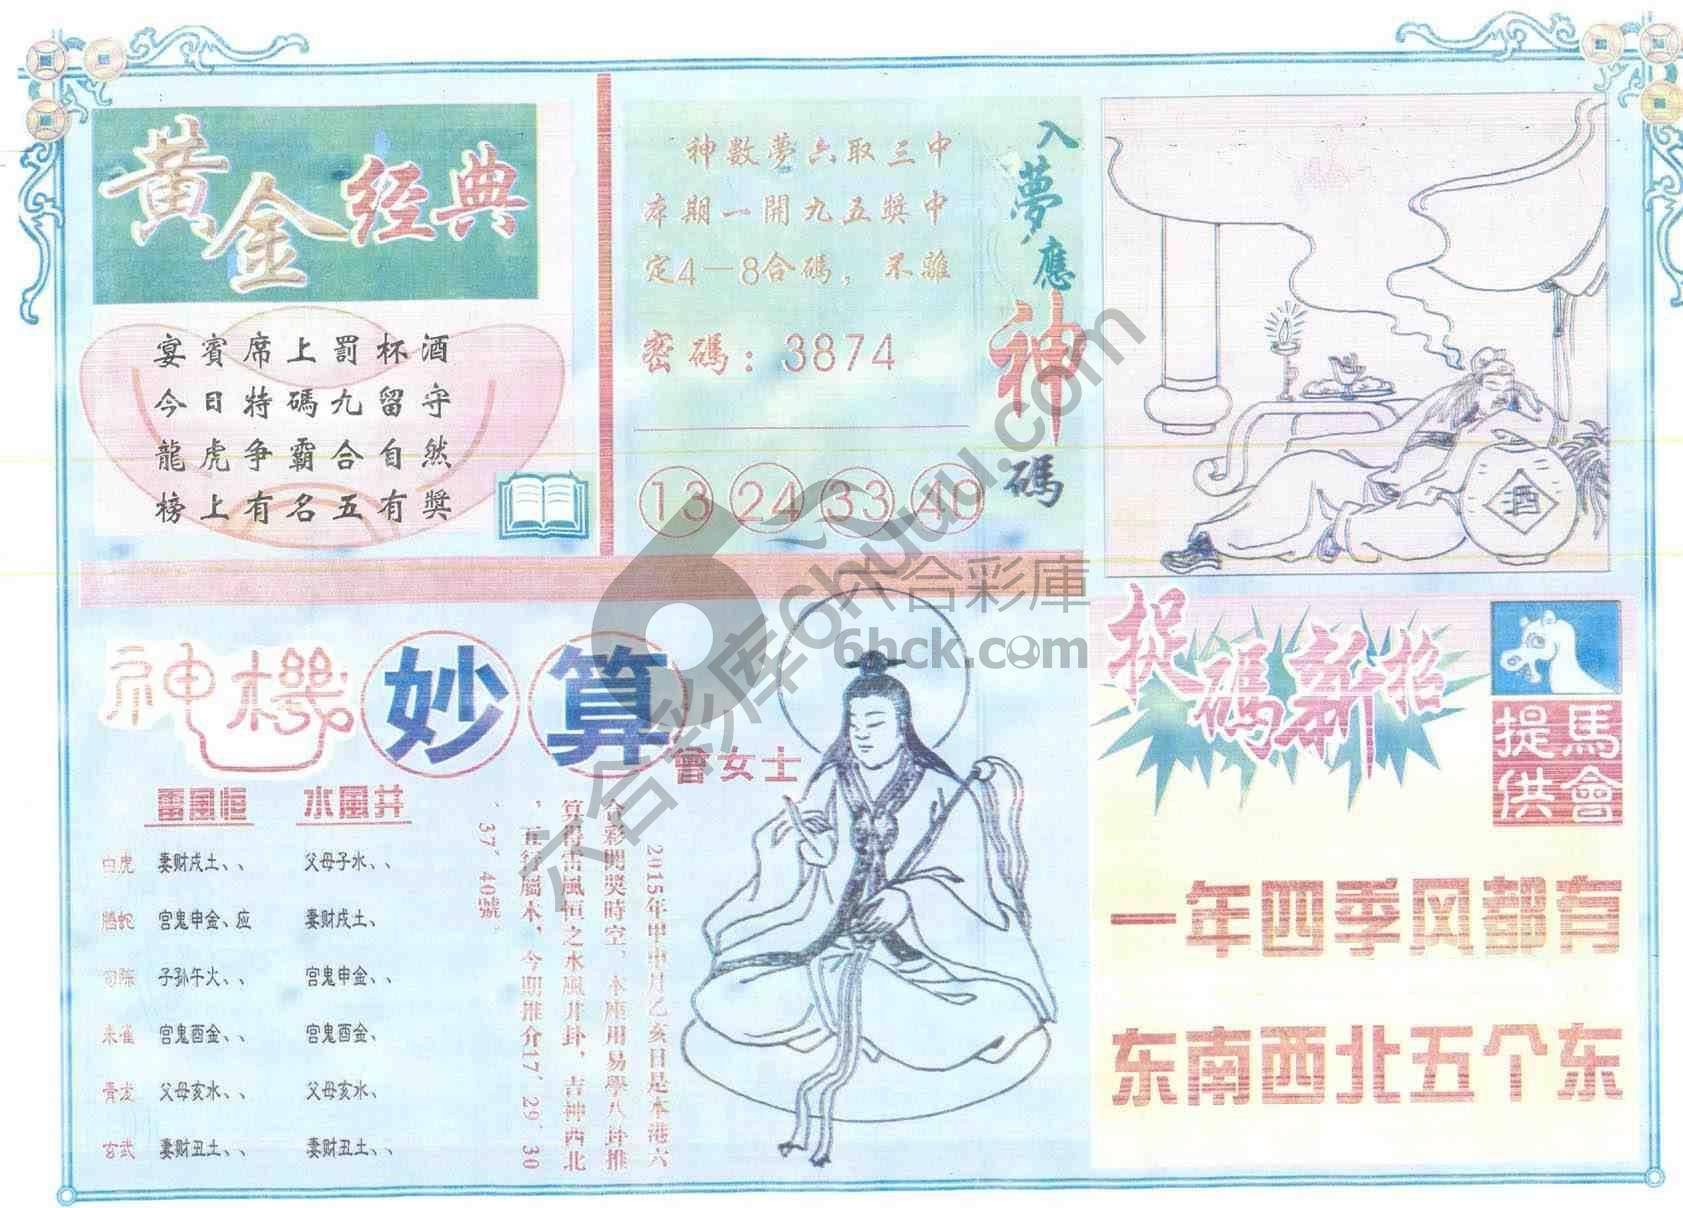 黃金经典
宴賓席上罰杯酒
今日特碼九留守
龍虎争霸合自然
榜上有名五有獎
神數夢六取三中
本期一開九五獎中
定4—8合碼，不離
密碼：3874
13 24 33 40
入夢應神碼
酒
神機妙算
會女士
雷風恒 水風井
白虎 妻财戌土、、 父母子水、、
腾蛇 官鬼申金、应 妻财戌土、
勾陈 子孙午火、、 官鬼申金、、
朱雀 官鬼酉金、、 官鬼酉金、
青龙 父母亥水、、 父母亥水、
玄武 妻财丑土、、 妻财丑土、、
2015年甲申月乙亥日是本港六
合彩開獎時空，本座用易學八卦推
算得雷風恒之水風井卦，吉神西北
，五行屬木，今期推介17、29、30
、37、40號。
捉碼新招
馬會提供
一年四季风都有
东南西北五个东
六合彩库6huuu.com
六合彩庫
6hck.com